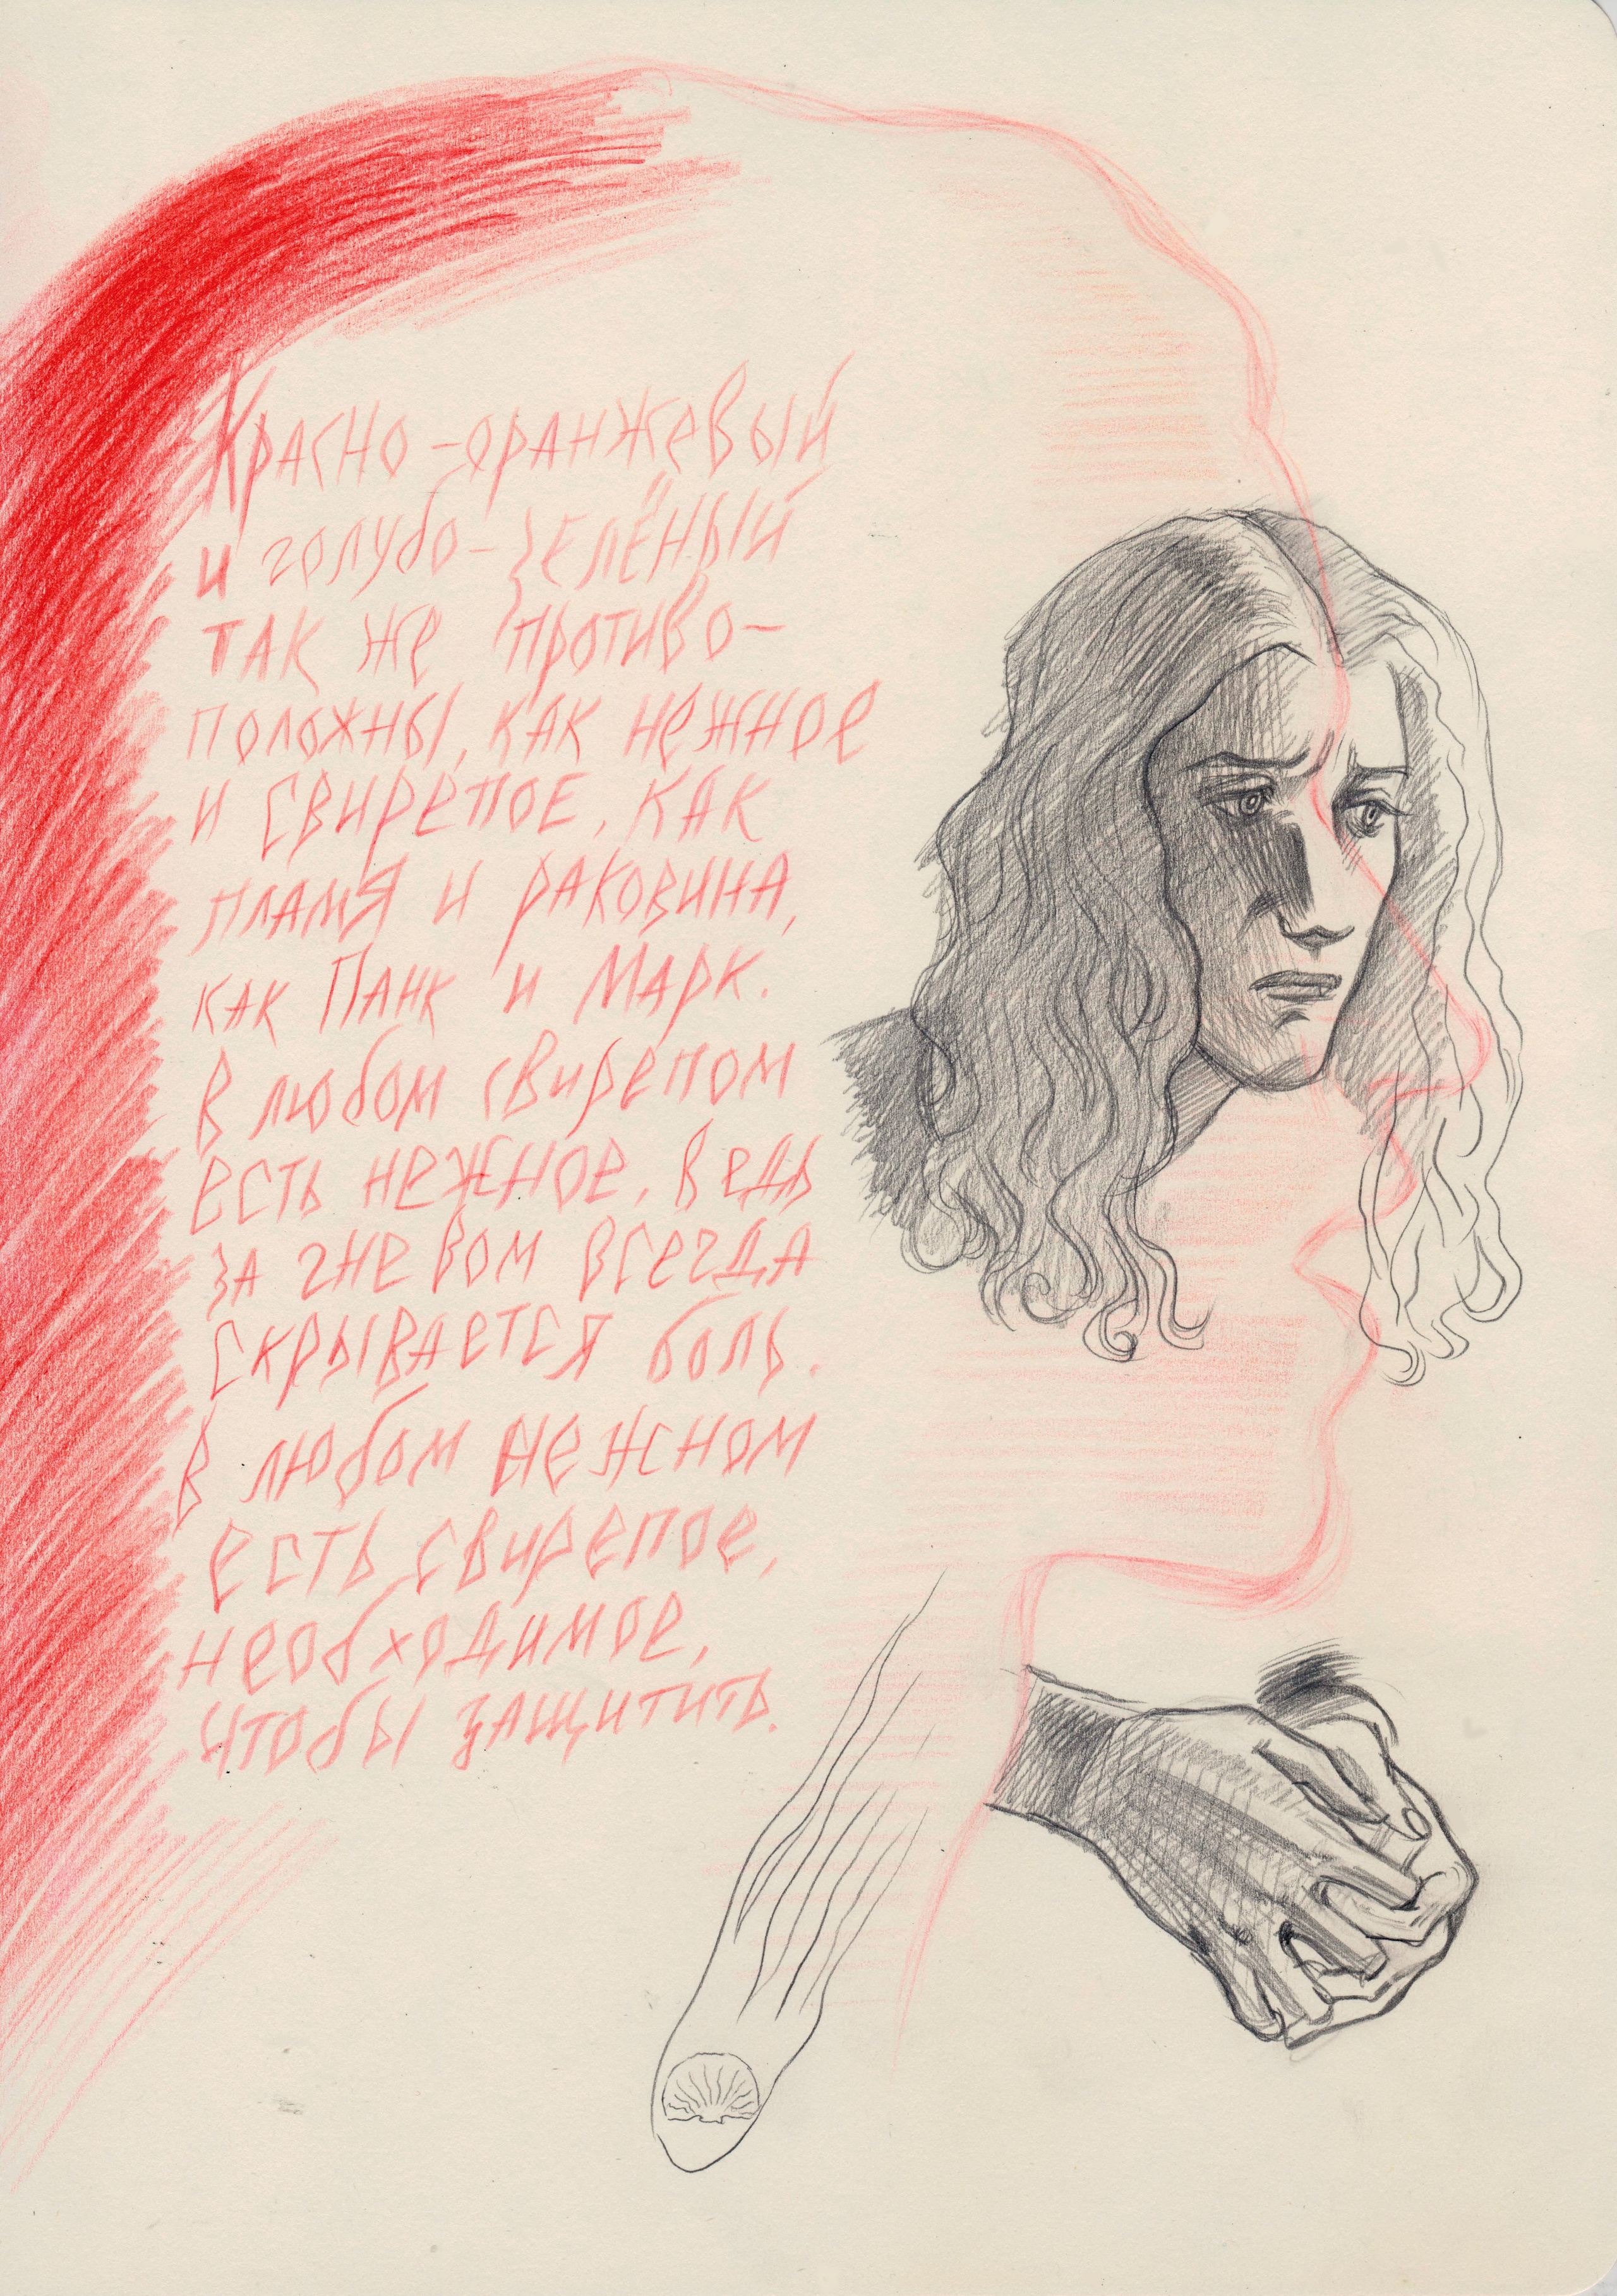 Красно-оранжевый
и голубо-зелёный
так же противо-
положны, как нежное
и свирепое, как
пламя и раковина,
как Панк и Марк.
В любом свирепом
есть нежное, ведь
за гневом всегда
скрывается боль.
В любом нежном
есть свирепое,
необходимое,
чтобы защитить.